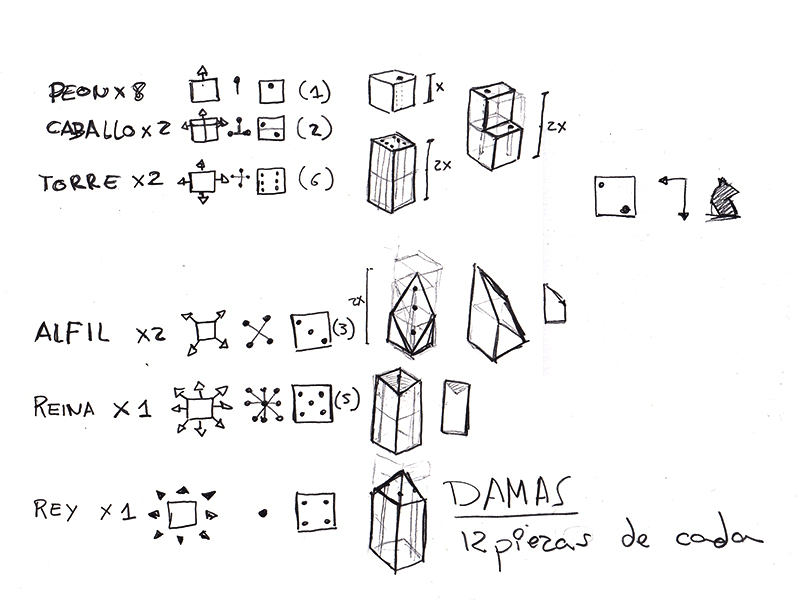 PEON x 8 (1) x
CABALLO x 2 (2) 2x
TORRE x2 (6) 2x
ALFIL x2 (3) 2x
REINA x 1 (5)
REY x 1
DAMAS
12 piezas de cada